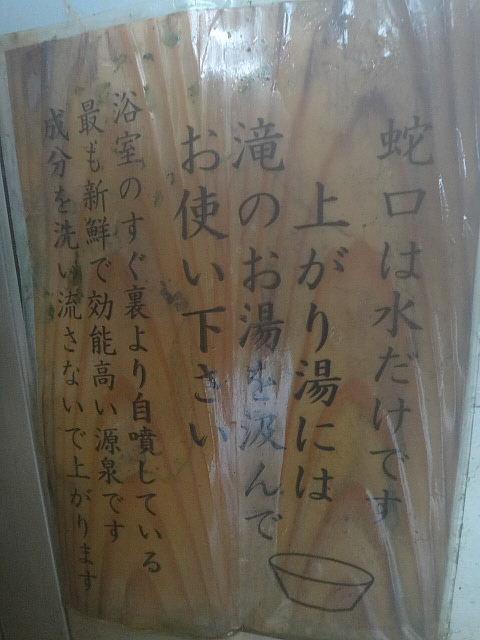 蛇口は水だけです
上がり湯には
滝のお湯を汲んで
お使い下さい
浴室のすぐ裏より自噴している
最も新鮮で効能高い源泉です
成分を洗い流さないで上がります